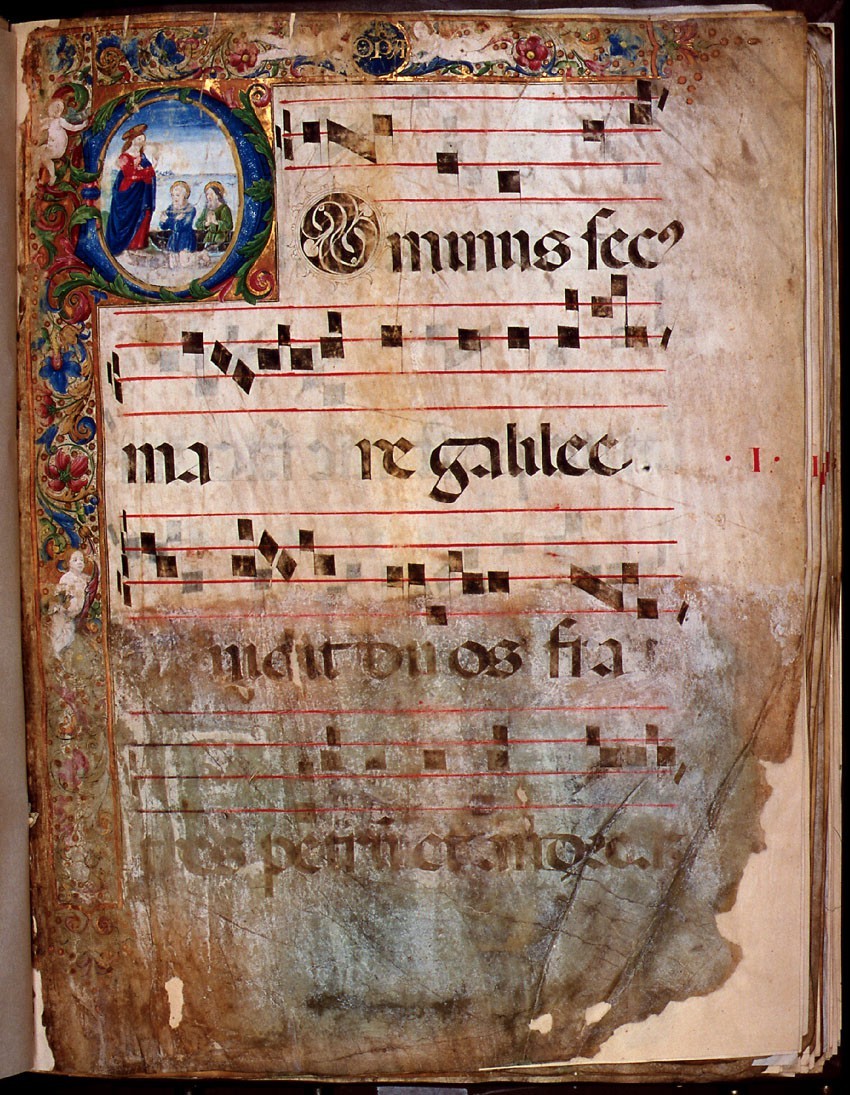 DOminus secꝰ
ma re galilee.
· I ·
vidit duos fra
tres petrū et andrea